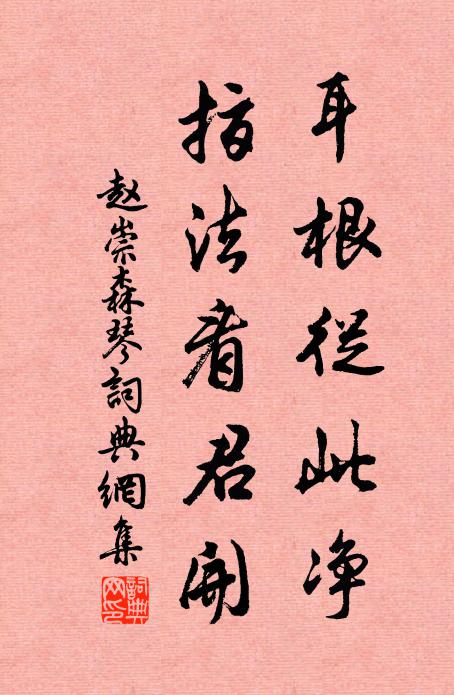 耳根從此净
指法看君開
赵崇森琴詞典網集
詞典网印